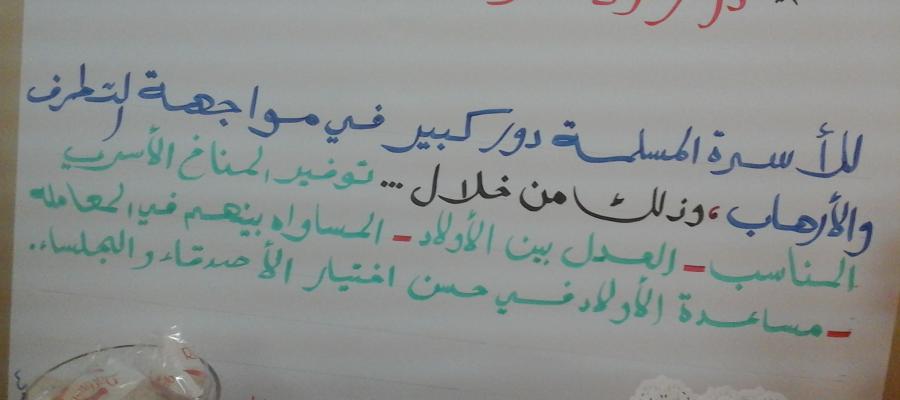 للأسرة المسلمة دور كبير في مواجهة التطرف
والأرهاب، وذلك من خلال ... توفير المناخ الأسري
المناسب - العدل بين الأولاد - المساواه بينهم في المعامله
- مساعدة الأولاد في حسن اختيار الأصدقاء والجلساء..